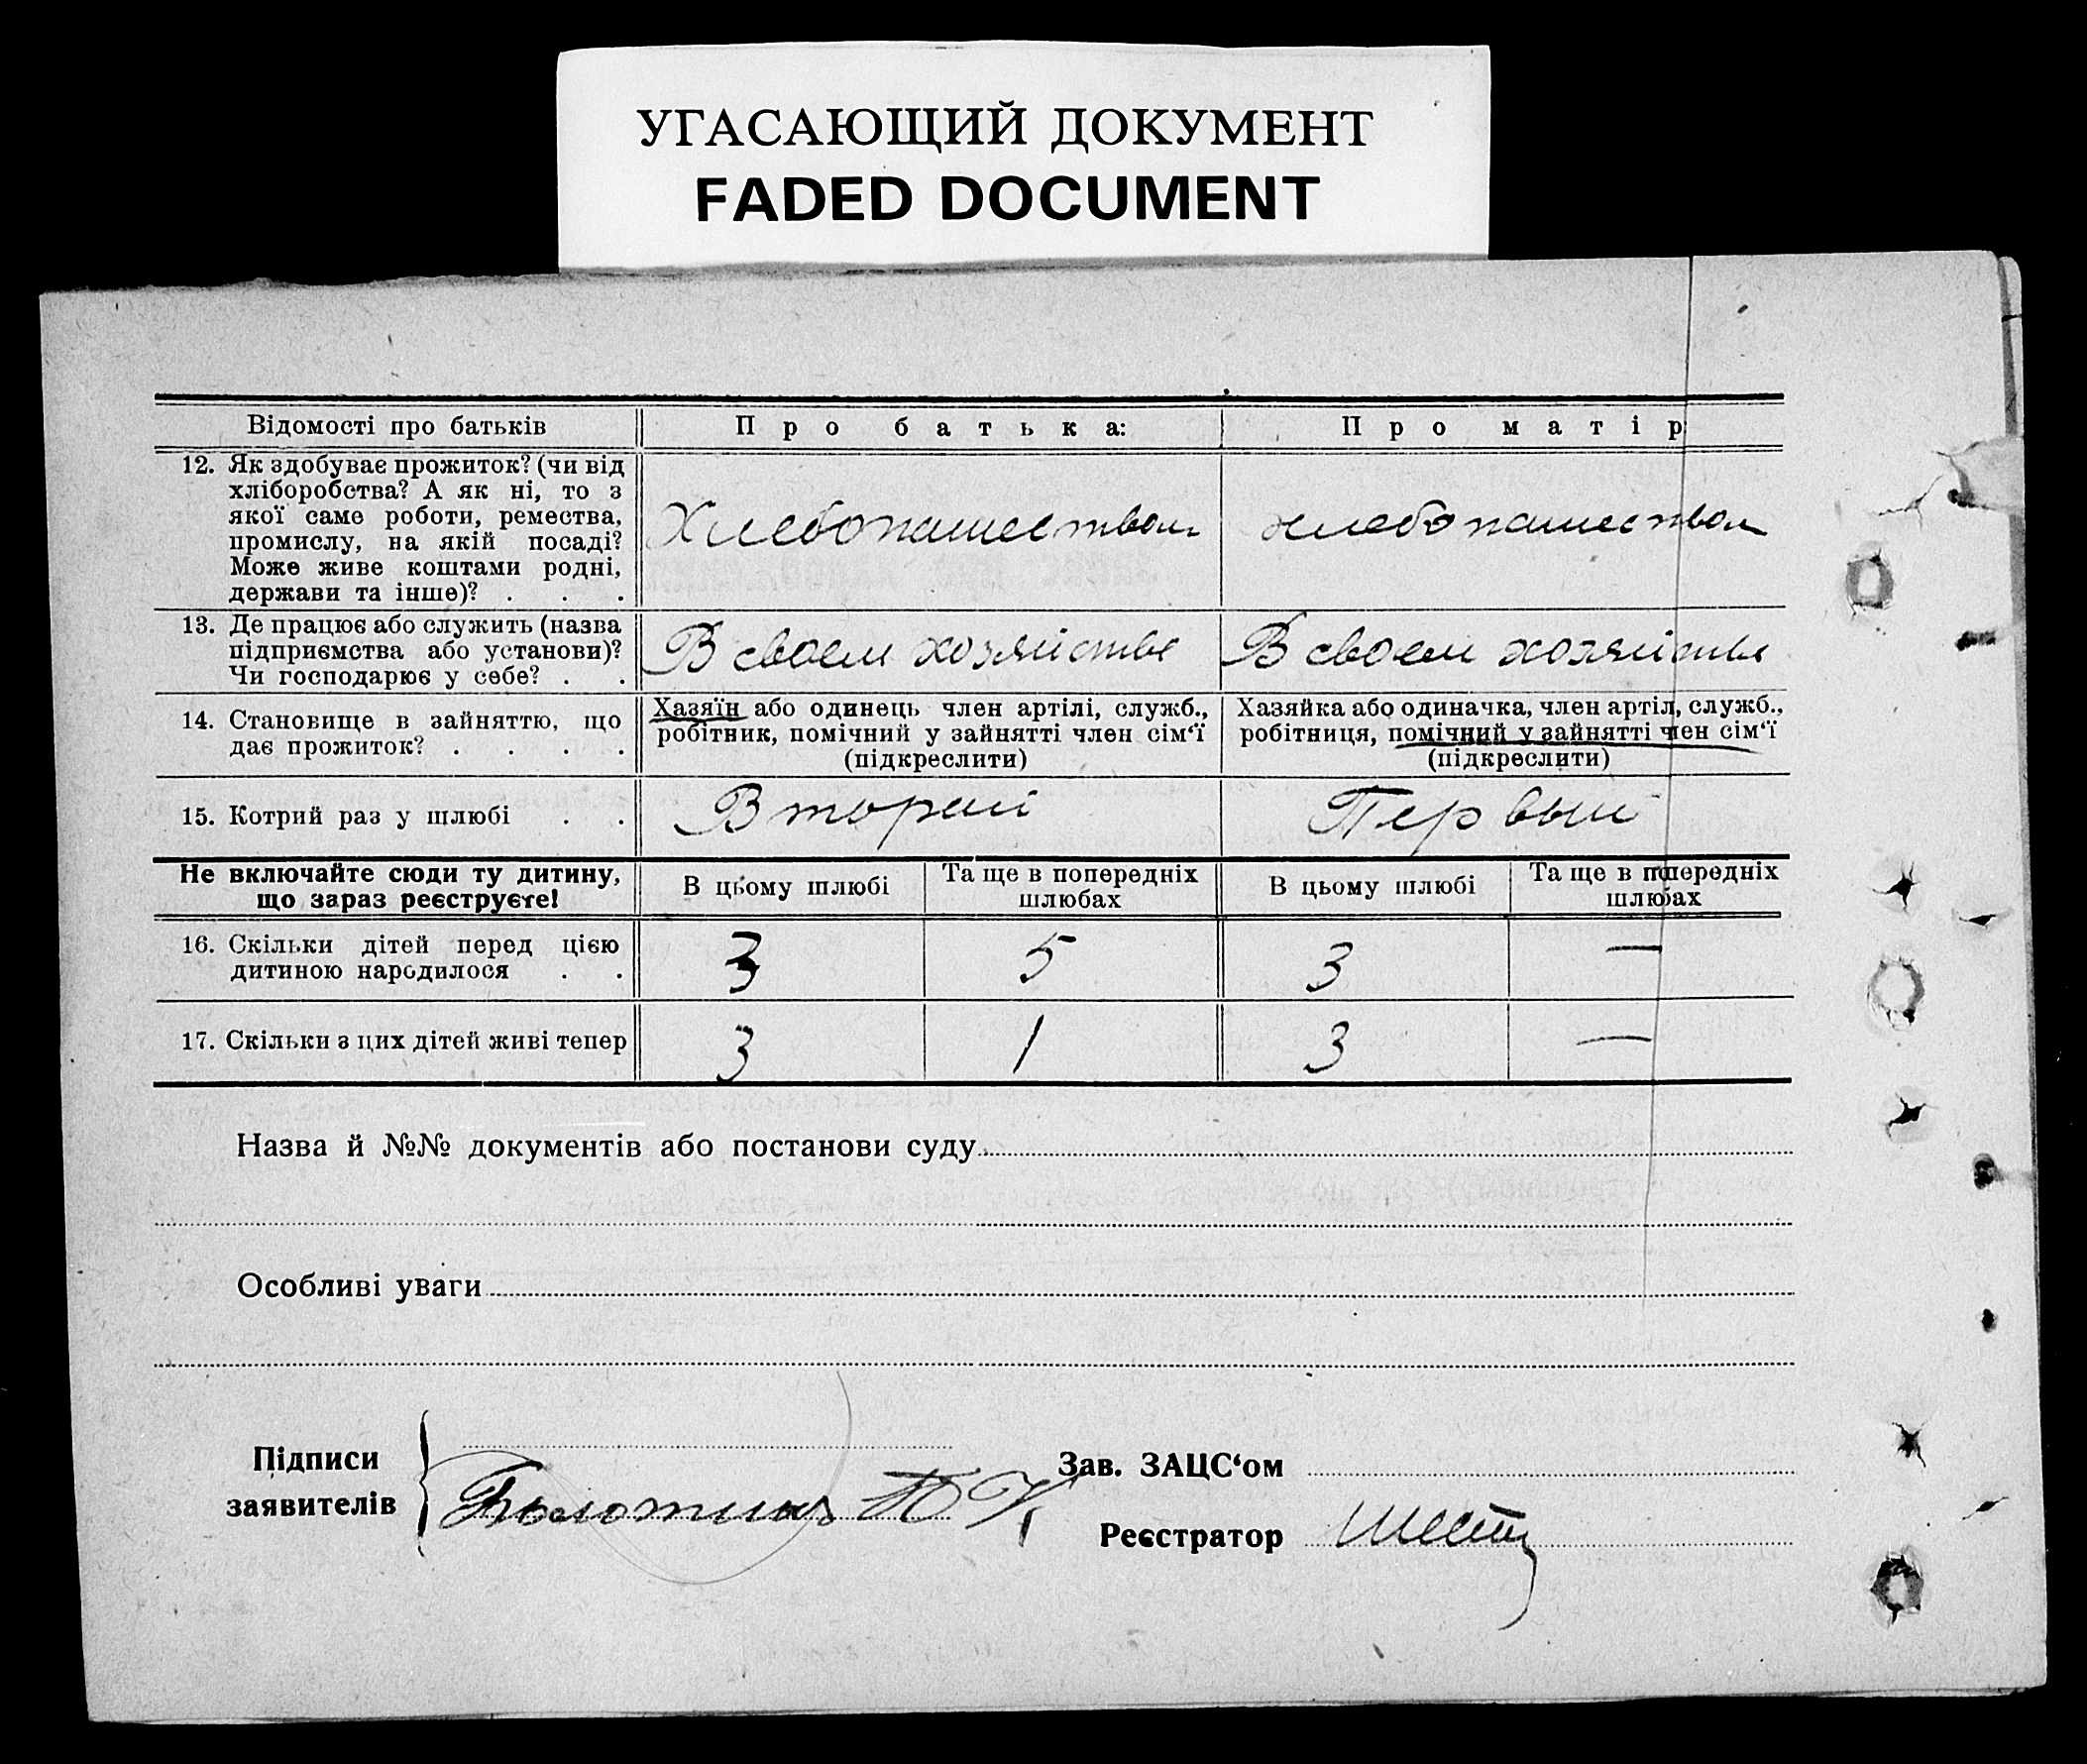 УГАСАЮЩИЙ ДОКУМЕНТ
FADED DOCUMENT
Відомості про батьків
Про батька:
Про матір
12. Як здобуває прожиток? (чи від
хліборобства? А як ні, то з
якої саме роботи, ремества,
промислу, на якій посаді?
Може живе коштами родні,
держави та інше)? . . .
Хлебопашеством
хлебопашеством
13. Де працює або служить (назва
підприємства або установи)?
Чи господарює у себе? . .
В своем хозяйстве
В своем хозяйстве
14. Становище в зайняттю, що
дає прожиток? . . . .
Хазяїн або одинець член артілі, служб.,
робітник, помічний у зайнятті член сім'ї
(підкреслити)
Хазяйка або одиначка, член артіл, служб.,
робітниця, помічний у зайнятті член сім'ї
(підкреслити)
15. Котрий раз у шлюбі . .
Второй
Первый
Не включайте сюди ту дитину,
що зараз реєструєте!
В цьому шлюбі
Та ще в попередніх
шлюбах
В цьому шлюбі
Та ще в попередніх
шлюбах
16. Скільки дітей перед цією
дитиною народилося . .
3
5
3
—
17. Скільки з цих дітей живі тепер
3
1
3
—
Назва й №№ документів або постанови суду
Особливі уваги
Підписи
заявителів
Болотинъ
Зав. ЗАЦС'ом
Реєстратор